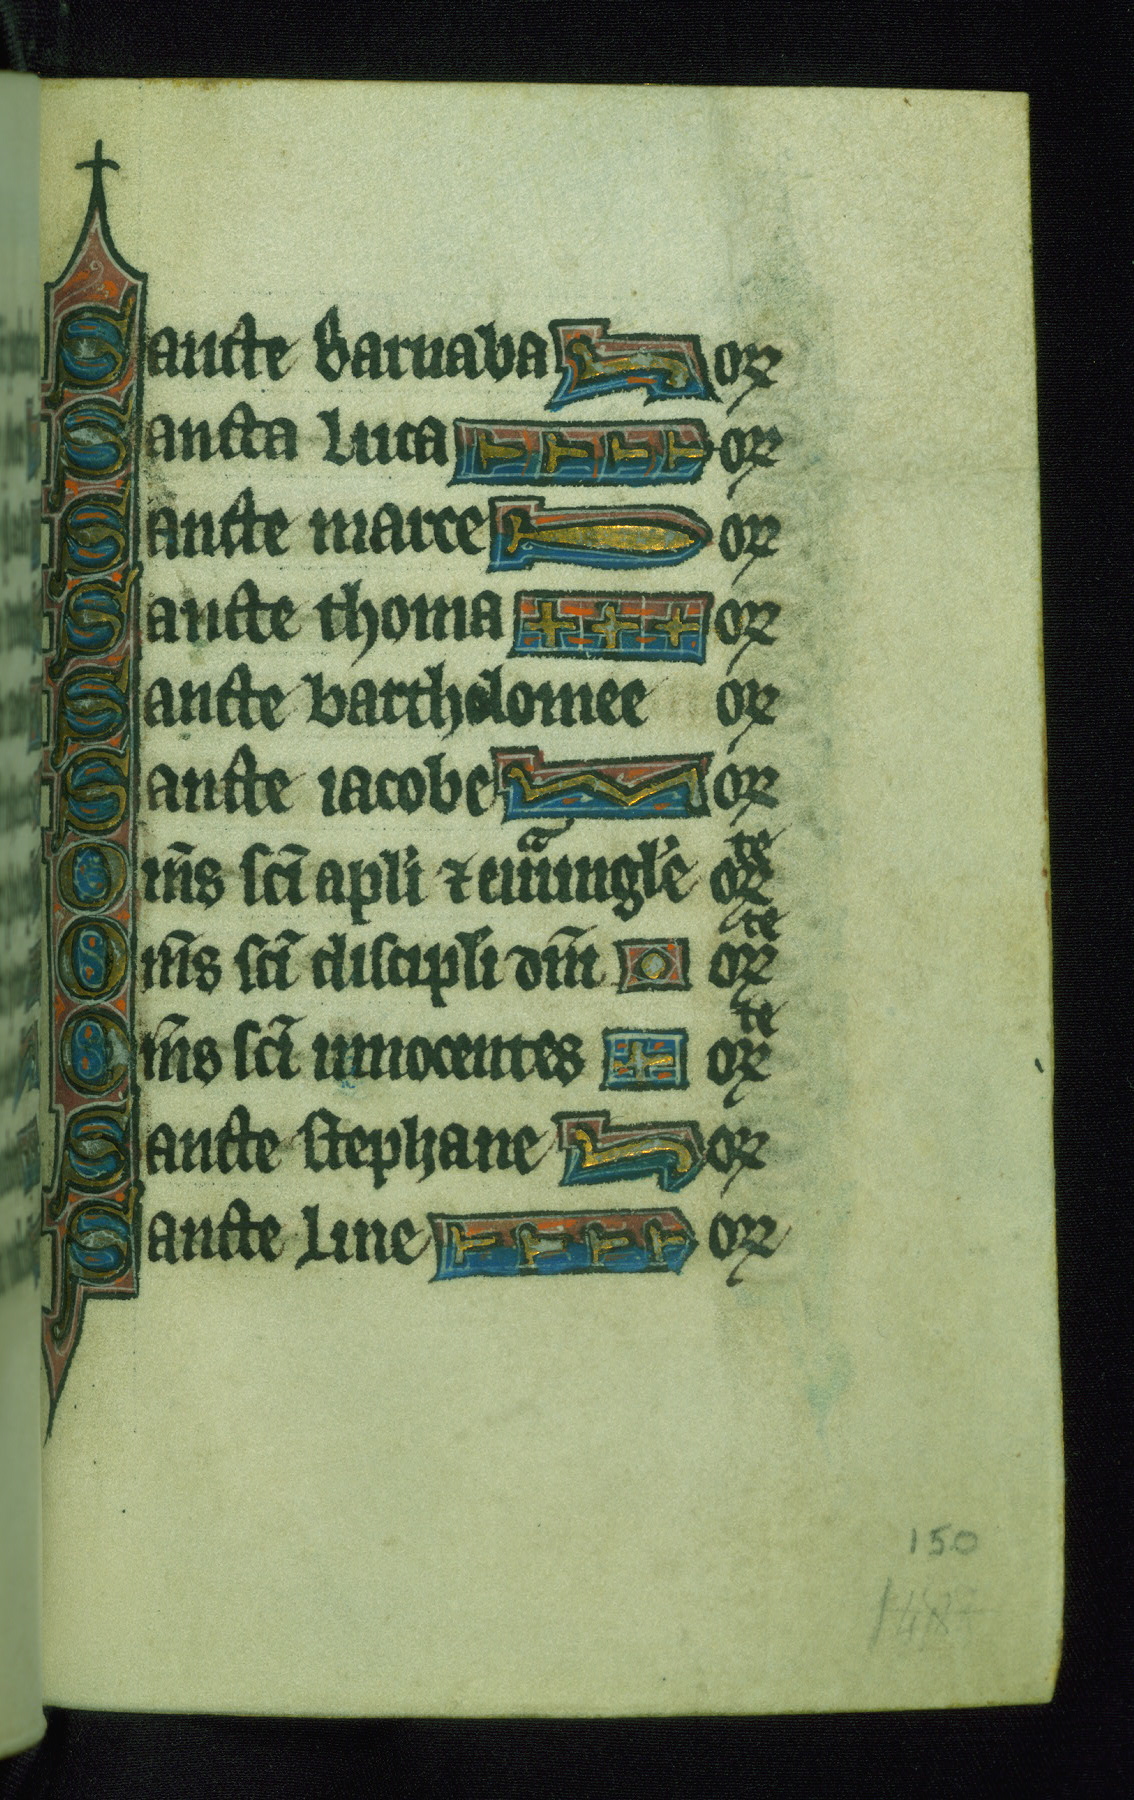 Sancte barnaba or
Sancta luca or
Sancte marce or
Sancte thoma or
Sancte bartholomee or
Sancte iacobe or
Om̄s sc̄i apl̄i ⁊ euuangl̄e orᵗᵉ
Om̄s sc̄i discipl̄i dn̄i orᵗᵉ
Om̄s sc̄i innocentes orᵗᵉ
Sancte stephane or
Sancte line or
150